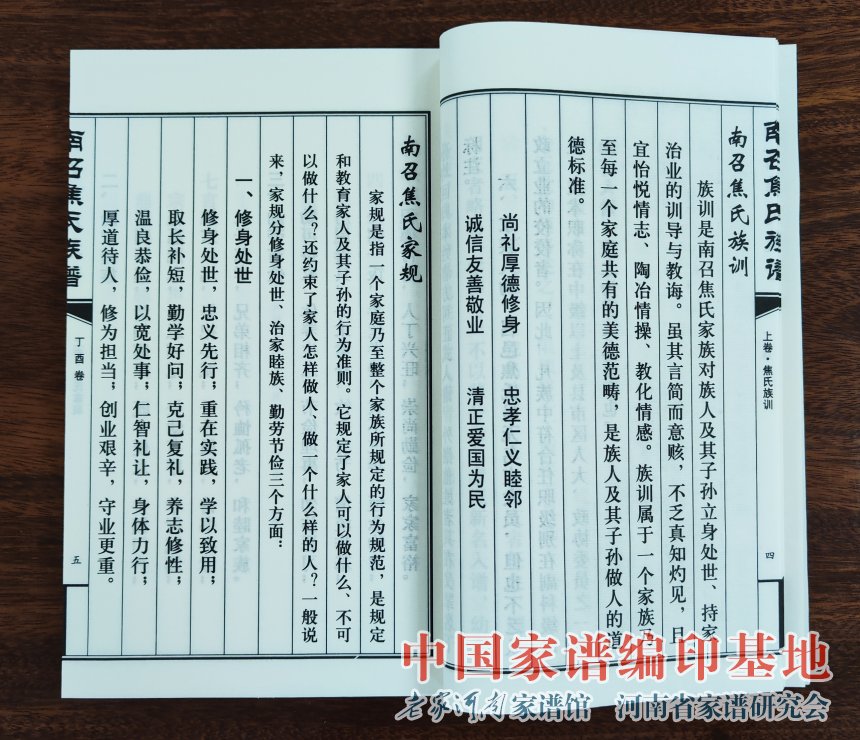 南召焦氏族谱
上卷·焦氏族训
四
南召焦氏族训
族训是南召焦氏家族对族人及其子孙立身处世、持家
治业的训导与教诲。虽其言简而意赅，不乏真知灼见，且
宜怡悦情志、陶冶情操、教化情感。族训属于一个家族乃
至每一个家庭共有的美德范畴，是族人及其子孙做人的道
德标准。
尚礼厚德修身 忠孝仁义睦邻
诚信友善敬业 清正爱国为民
南召焦氏家规
家规是指一个家庭乃至整个家族所规定的行为规范，是规定
和教育家人及其子孙的行为准则。它规定了家人可以做什么、不可
以做什么？还约束了家人怎样做人、做一个什么样的人？一般说
来，家规分修身处世、治家睦族、勤劳节俭三个方面：
一、修身处世
修身处世，忠义先行；重在实践，学以致用；
取长补短，勤学好问；克己复礼，养志修性；
温良恭俭，以宽处事；仁智礼让，身体力行；
厚道待人，修为担当；创业艰辛，守业更重。
南召焦氏族谱
丁酉卷
五
中国家谱编印基地
老家河南家谱馆 河南省家谱研究会